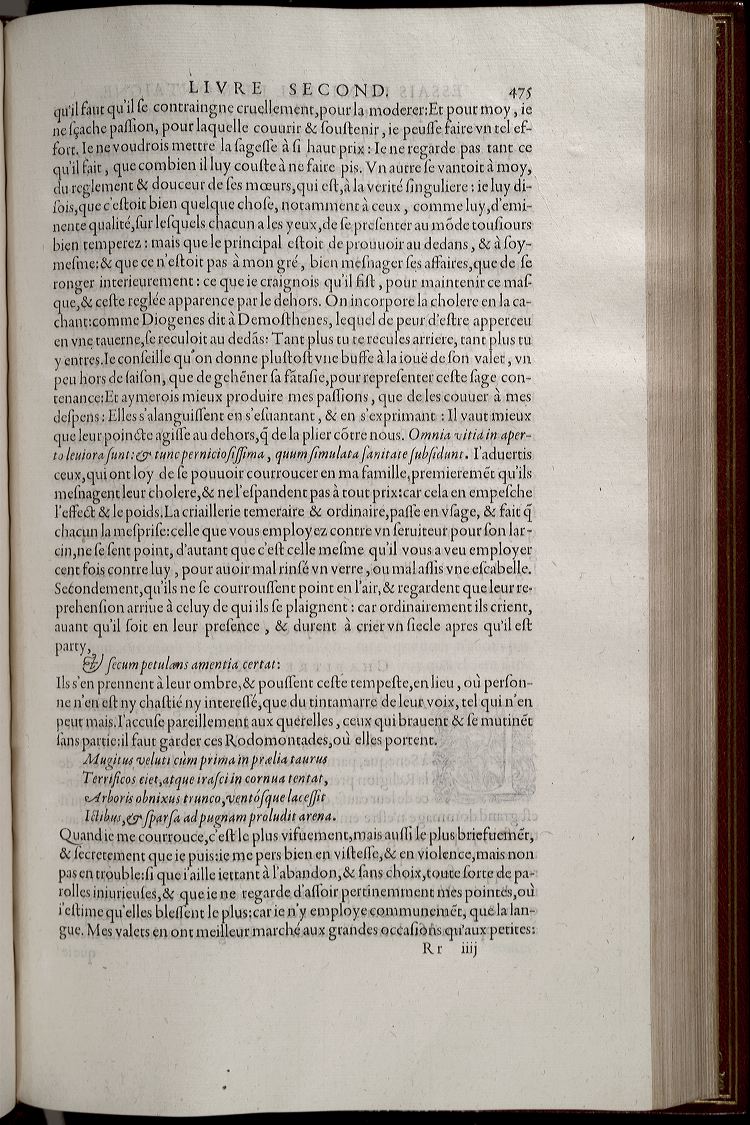 LIVRE SECOND. 475
qu'il faut qu'il se contraingne cruellement, pour la moderer: Et pour moy, ie
ne sçache passion, pour laquelle couurir & soustenir, ie peusse faire vn tel ef-
fort. Ie ne voudrois mettre la sagesse à si haut prix: Ie ne regarde pas tant ce
qu'il fait, que combien il luy couste à ne faire pis. Vn autre se vantoit à moy,
du reglement & douceur de ses mœurs, qui est, à la verité singuliere: ie luy di-
sois, que c'estoit bien quelque chose, notamment à ceux, comme luy, d'emi-
nente qualité, sur lesquels chacun a les yeux, de se presenter au mõde tousiours
bien temperez: mais que le principal estoit de prouuoir au dedans, & à soy-
mesme: & que ce n'estoit pas à mon gré, bien mesnager ses affaires, que de se
ronger interieurement: ce que ie craignois qu'il fist, pour maintenir ce mas-
que, & ceste reglée apparence par le dehors. On incorpore la cholere en la ca-
chant: comme Diogenes dit à Demosthenes, lequel de peur d'estre apperceu
en vne tauerne, se reculoit au dedãs: Tant plus tu te recules arriere, tant plus tu
y entres. Ie conseille qu'on donne plustost vne buffe à la iouë de son valet, vn
peu hors de saison, que de gehéner sa fãtasie, pour representer ceste sage con-
tenance: Et aymerois mieux produire mes passions, que de les couuer à mes
despens: Elles s'alanguissent en s'esuantant, & en s'exprimant: Il vaut mieux
que leur poincte agisse au dehors, q̃ de la plier cõtre nous. Omnia vitia in aper-
to leuiora sunt: & tunc perniciosissima, quum simulata sanitate subsidunt. I'aduertis
ceux, qui ont loy de se pouuoir courroucer en ma famille, premieremẽt qu'ils
mesnagent leur cholere, & ne l'espandent pas à tout prix: car cela en empesche
l'effect & le poids. La criaillerie temeraire & ordinaire, passe en vsage, & fait q̃
chacun la mesprise: celle que vous employez contre vn seruiteur pour son lar-
cin, ne se sent point, d'autant que c'est celle mesme qu'il vous a veu employer
cent fois contre luy, pour auoir mal rinsé vn verre, ou mal assis vne escabelle.
Secondement, qu'ils ne se courroussent point en l'air, & regardent que leur re-
prehension arriue à celuy de qui ils se plaignent: car ordinairement ils crient,
auant qu'il soit en leur presence, & durent à crier vn siecle apres qu'il est
party,
& secum petulans amentia certat:
Ils s'en prennent à leur ombre, & poussent ceste tempeste, en lieu, où person-
ne n'en est ny chastié ny interessé, que du tintamarre de leur voix, tel qui n'en
peut mais. I'accuse pareillement aux querelles, ceux qui brauent & se mutinẽt
sans partie: il faut garder ces Rodomontades, où elles portent.
Mugitus veluti cùm prima in prælia taurus
Terrificos ciet, atque irasci in cornua tentat,
Arboris obnixus trunco, ventósque lacessit
Ictibus, & sparsa ad pugnam proludit arena.
Quand ie me courrouce, c'est le plus vifuement, mais aussi le plus briefuemẽt,
& secretement que ie puis: ie me pers bien en vistesse, & en violence, mais non
pas en trouble: si que i'aille iettant à l'abandon, & sans choix, toute sorte de pa-
rolles iniurieuses, & que ie ne regarde d'assoir pertinemment mes pointes, où
i'estime qu'elles blessent le plus: car ie n'y employe communemẽt, que la lan-
gue. Mes valets en ont meilleur marché aux grandes occasions qu'aux petites:
Rr iiij